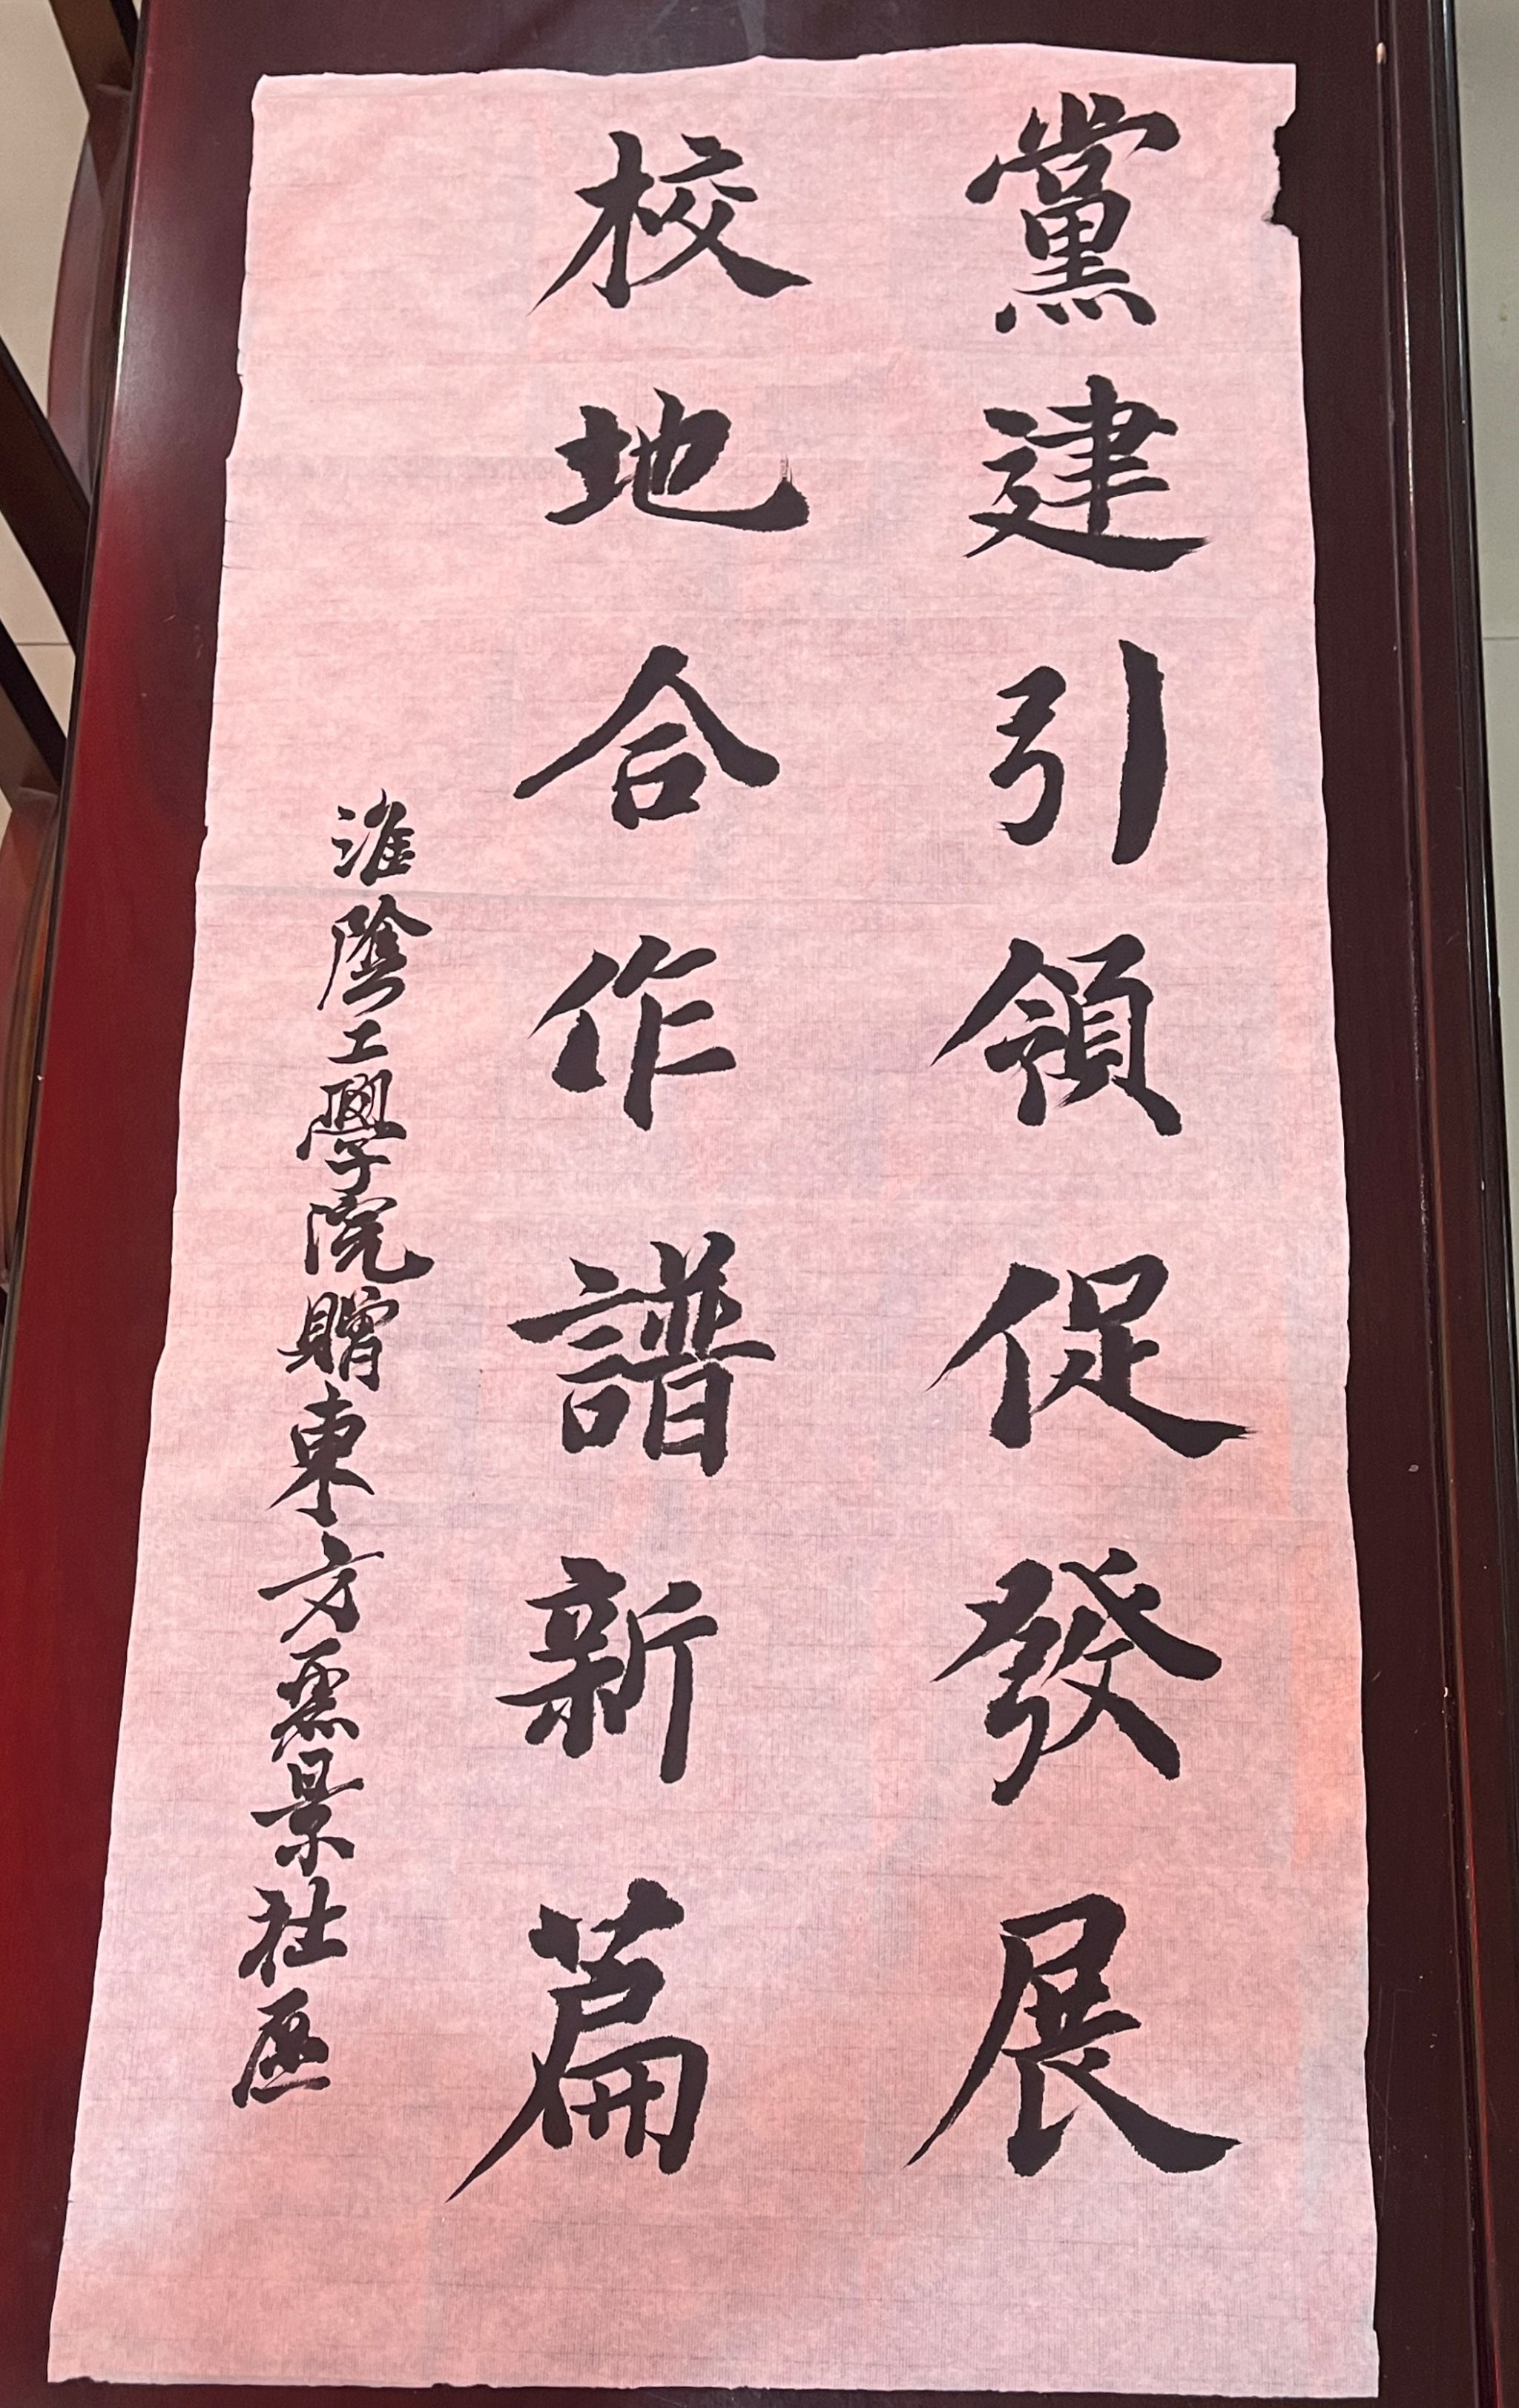 黨建引領促發展
校地合作譜新篇
淮陰工學院贈東方䨇景社區